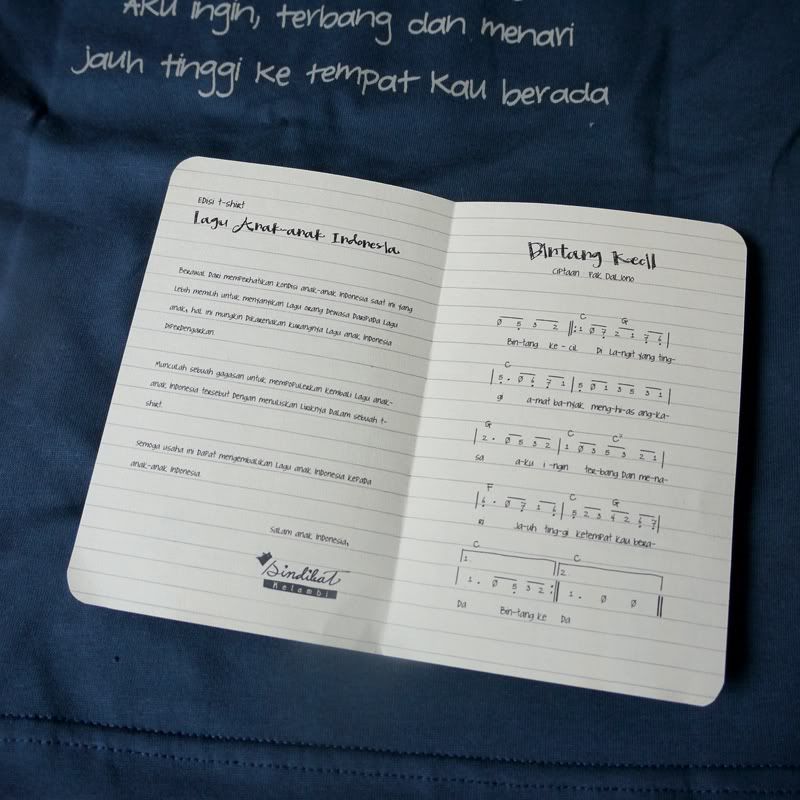 Aku ingin, terbang dan menari
jauh tinggi ke tempat kau berada
Edisi t-shirt
Lagu Anak-anak Indonesia
Berawal dari memperhatikan kondisi anak-anak Indonesia saat ini yang
lebih memilih untuk menyanyikan lagu orang dewasa daripada lagu
anak, hal ini mungkin dikarenakan kurangnya lagu anak Indonesia
diperdengarkan.
Munculah sebuah gagasan untuk mempopulerkan kembali lagu anak-
anak Indonesia tersebut dengan menuliskan liriknya dalam sebuah t-
shirt.
Semoga usaha ini dapat mengembalikan lagu anak Indonesia kepada
anak-anak Indonesia.
Salam anak Indonesia,
Sindikat
Kelambi
Bintang Kecil
Ciptaan Pak Daljono
C G
0 5 3 2 ||: 1 0 7 2 1 7 6 |
Bin-tang ke-cil Di la-ngit yang ting-
C
| 5 . 0 6 7 1 | 5 0 1 3 5 3 1 |
gi a-mat ba-njak meng-hi-as ang-ka-
G C C7
| 2 . 0 5 3 2 | 1 0 3 5 3 2 1 |
sa a-ku i-ngin ter-bang dan me-na-
F C G
| 6 . 0 7 1 6 | 5 2 3 4 2 6 7 |
ri Ja-uh ting-gi ketempat kau bera-
C C
1. 2.
| 1 . 0 5 3 2 :|| 1 . 0 0 ||
Da Bin-tang ke Da